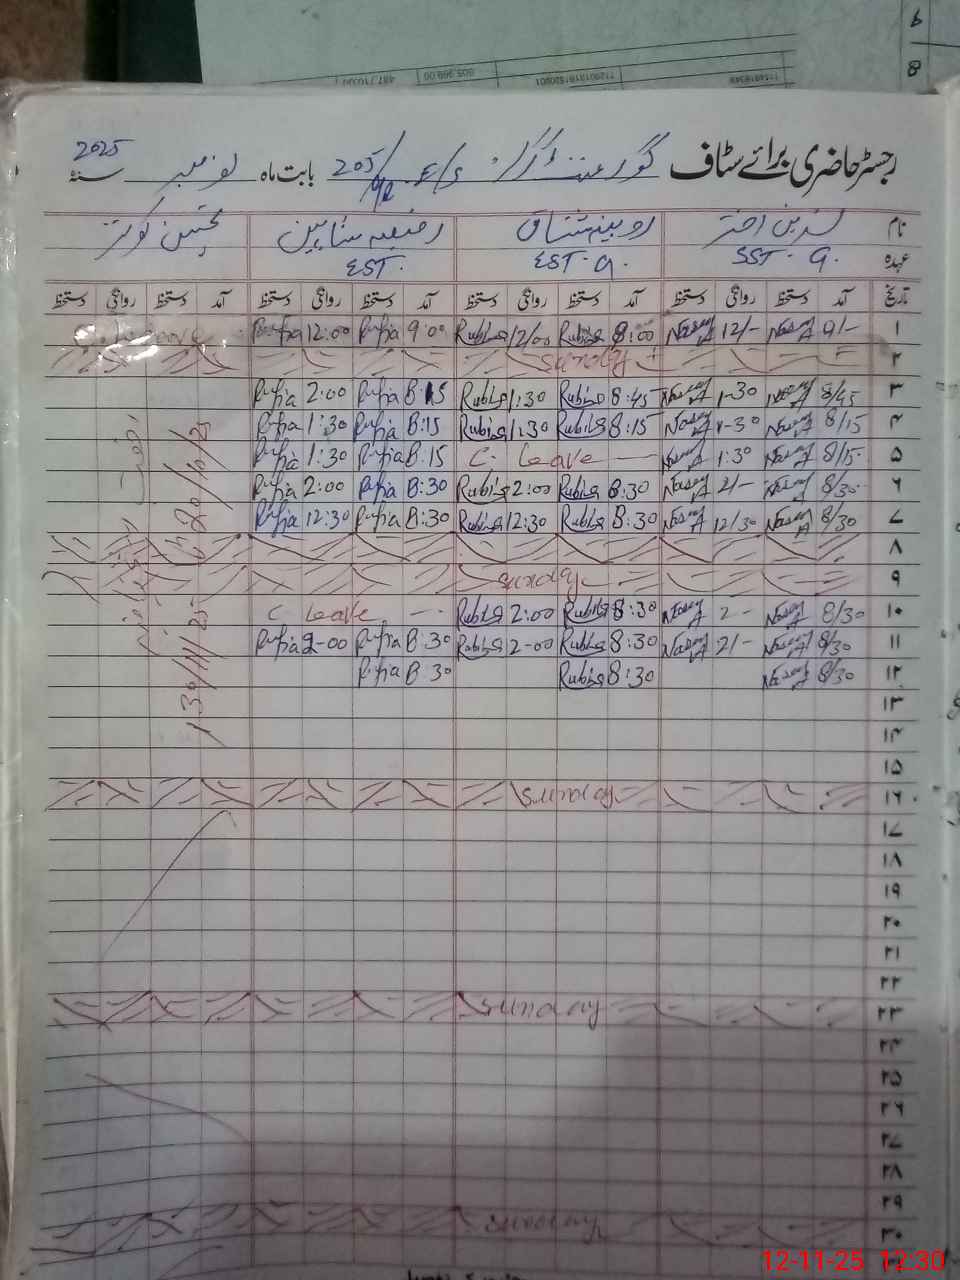 رجسٹر حاضری برائے سٹاف گورنمنٹ گرلز E/S 205/9R بابت ماہ نومبر سنہ 2025
نام نسرین اختر روبینہ مشتاق رضیہ شاہین تحسین کوثر
عہدہ SST - 9. EST - 9. EST.
تاریخ آمد دستخط روانگی دستخط آمد دستخط روانگی دستخط آمد دستخط روانگی دستخط آمد دستخط روانگی دستخط
۱ 9/- 12/- 9:00 Rubina 12/00 Rubina 9:00 Rufia 12:00 Rufia
۲ Sunday
۳ 8/45 1-30 8:45 Rubina 1:30 Rubina 8:15 Rufia 2:00 Rufia
۴ 8/15 1-30 8:15 Rubina 1:30 Rubina 8:15 Rufia 1:30 Rufia
۵ 8/15 1:30 C. Leave 8:15 Rufia 1:30 Rufia
۶ 8/30 2/- 8:30 Rubina 2:00 Rubina 8:30 Rufia 2:00 Rufia
۷ 8/30 12/30 8:30 Rubina 12:30 Rubina 8:30 Rufia 12:30 Rufia
۸
۹ Sunday
۱۰ 8/30 2 - 8:30 Rubina 2:00 Rubina C Leave
۱۱ 8/30 2/- 8:30 Rubina 2-00 Rubina 8:30 Rufia 2-00 Rufia
۱۲ 8/30 8:30 Rubina 8:30 Rufia
۱۳
۱۴
۱۵
۱۶ Sunday
۱۷
۱۸
۱۹
۲۰
۲۱
۲۲
۲۳ Sunday
۲۴
۲۵
۲۶
۲۷
۲۸
۲۹
۳۰
12-11-25 12:30